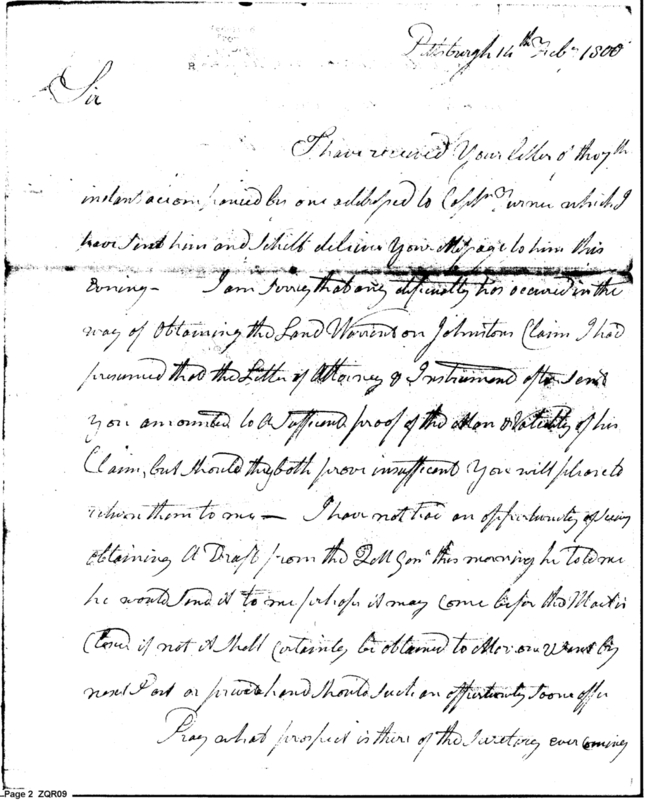 Pittsburgh 14th Feby 1800
Sir
I have received Your letter of the 7th
instant accompanied by one addressed to Captn Turner which I
have sent him and I shall deliver Your Message to him this
Evening — I am sorrey that any difficulty has occured in the
way of Obtaining the Land Warrant on Johnstons Claim I had
presumed that the Letter of Attorney & Instrument after sent
you amounted to a sufficent proof of the Man & Validity of his
Claim, but should they both prove insufficent You will please to
return them to me — I have not had an oppertunity of
obtaining A Draft from the Qr Mr Genl this morning he told me
he would send it to me perhaps it may come before the Mail is
Closed if not it shall certainly be obtained tomorrow & sent by
next Post or private hand should such an oppertunity soone offer
Pray what prospect is there of the Secretary ever coming
Page 2 ZQR09